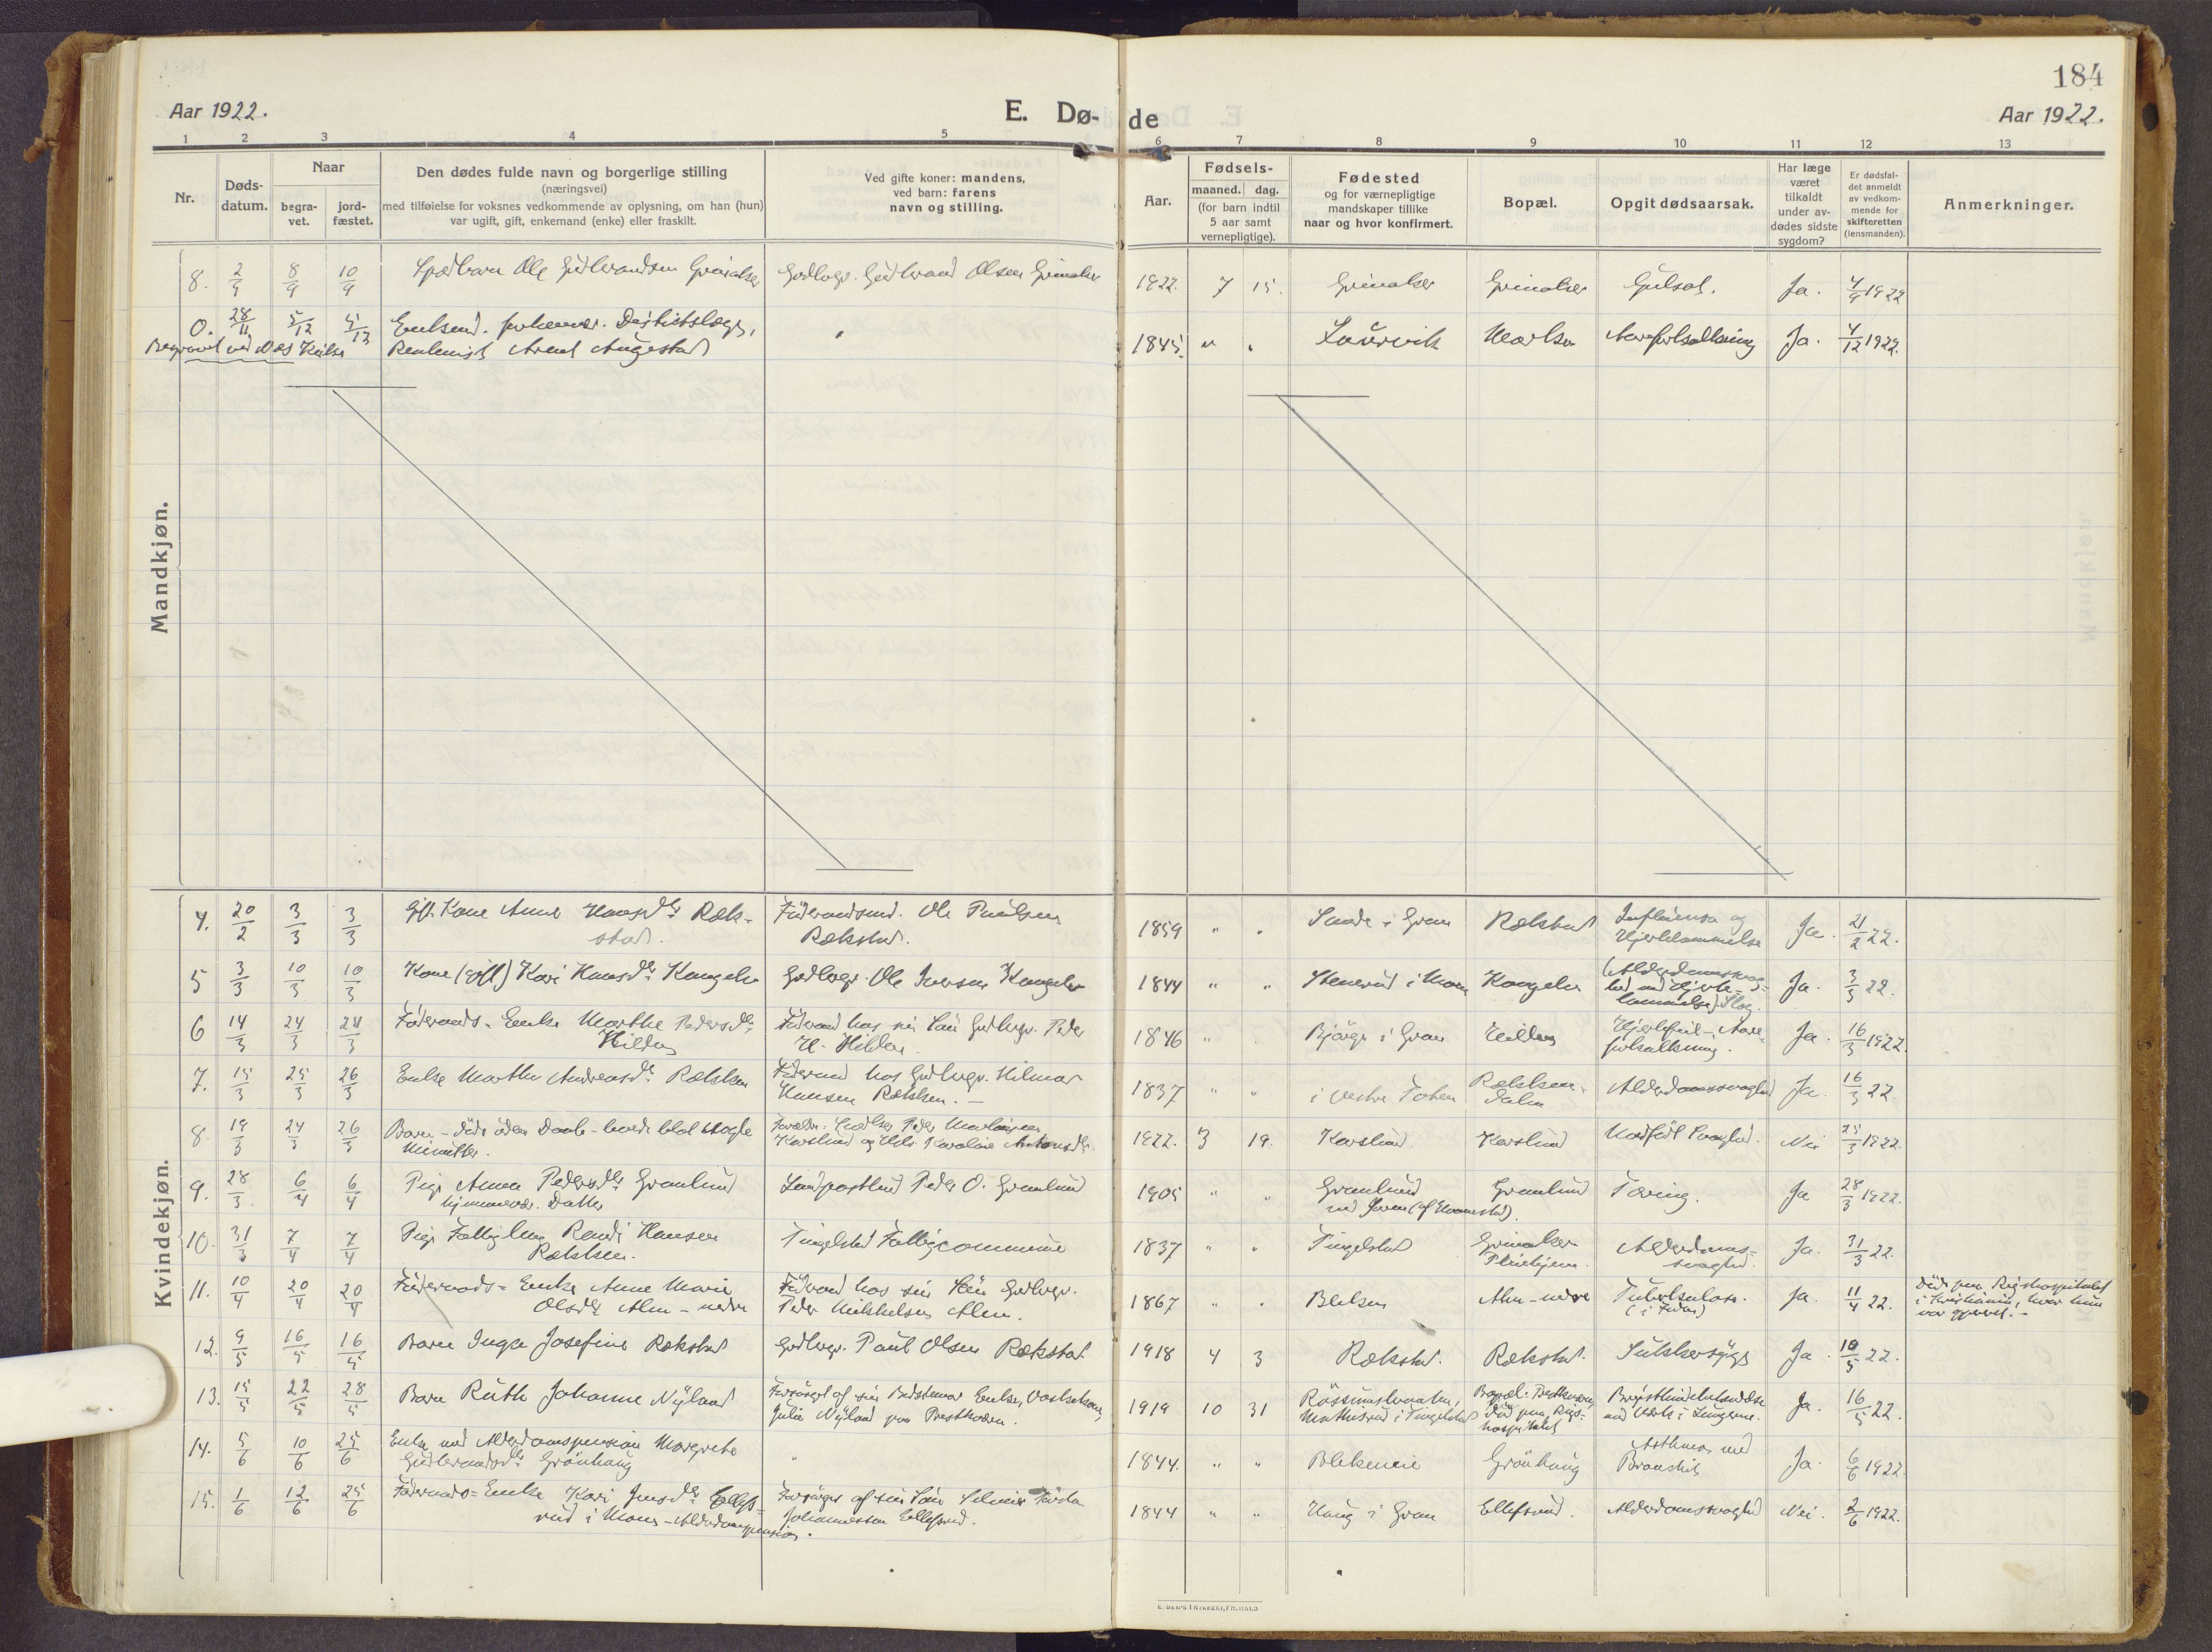 184
Aar 1922.
E. Dø-
de
Aar 1922.
1 2 3 4 5 6 7 8 9 10 11 12 13
Nr.
Døds-
datum.
Naar
begra-
vet.
jord-
fæstet.
Den dødes fulde navn og borgerlige stilling
(næringsvei)
med tilføielse for voksnes vedkommende av oplysning, om han (hun)
var ugift, gift, enkemand (enke) eller fraskilt.
Ved gifte koner: mandens,
ved barn: farens
navn og stilling.
Aar.
Fødsels-
maaned. dag.
(for barn indtil
5 aar samt
vernepligtige).
Fødested
og for værnepligtige
mandskaper tillike
naar og hvor konfirmert.
Bopæl.
Opgit dødsaarsak.
Har læge
været
tilkaldt
under av-
dødes sidste
sygdom?
Er dødsfal-
det anmeldt
av vedkom-
mende for
skifteretten
(lensmanden).
Anmerkninger.
Mandkjøn.
8. 2/9 8/9 10/9 Spædbarn Ole Gudbrandsen Grinaker Gudbrand Olsen Grinaker 1922. 7 15. Grinaker Grinaker Gulsot. Ja. 4/9 1922
0. 28/11 5/12 5/12 Enkemd. forhenvær. Distriktslæge, 1845. " " Laurvik Aareforkalkning Ja. 4/12 1922.
Begravet ved Næs Kirke Arent Augestad
Kvindekjøn.
4. 20/2 3/3 3/3 Gift Kone Anne Hansdtr Ræk- Føderaadsmd. Ole Paulsen 1859 " " Sande i Gran Rækstad Influensa og Ja. 21/2 22.
stad. Rækstad. Hjertelammelse
5 3/3 10/3 10/3 Kone (gift) Kari Hansdtr Kongelv Gdbrgr. Ole Iversen Kongelv 1844 " " Stenerud i Moen Kongelv (Alderdomssvag- Ja. 3/3 22.
hed med Hjerte-
lammelse) Slag.
6 14/3 24/3 24/3 Føderaads-Enke Marthe Pedersdtr Føderaad hos sin Søn Gdbrgr. Peder 1846 " Bjørge i Gran Hilden Hjertefeil-Aare- Ja. 16/3 1922.
Hilden H. Hilden. forkalkning.
7. 15/3 25/3 26/3 Enke Marthe Andreasdtr Rækken Føderaad hos Gdbrgr. Hilmar 1837 " " i Vestre Toten Alderdomssvaghed Ja. 16/3 22.
Hansen Rækken.-
8. 19/3 24/3 26/3 Barn-døde uden Daab-levede blot nogle Peder 1922. 3 19. Korslund Korslund Medfødt Svaghed. Nei 25/3 1922.
Minutter. Korslund og Karoline Antonsdtr.
9. 28/3 6/4 6/4 Pige Anna Pedersdtr Granlund Landpostbud Peder O. Granlund 1905 " " Granlund Granlund Tæring. Ja 28/3 1922.
hjemmevær. Datter
10. 31/3 7/4 7/4 Pige Fattiglem Randi Hansen Tingelstad Fattigcommune 1837 " " Tingelstad Grinaker Alderdoms- Ja. 31/3 22.
Rækken. Pleiehjem. svaghed.
11. 10/4 20/4 20/4 Føderaads-Enke Anne Marie Føderaad hos sin Søn Gdbrgr. 1867 " " Bleken Alm-nedre Tuberkulose. Ja. 11/4 22. Død paa Rigshospitalet
Olsdtr Alm-nedre Peder Mikkelsen Alm. i Kristiania, hvor hun
var opereret.-
12. 9/5 16/5 16/5 Barn Inga Josefine Rækstad Gdbrgr. Paul Olsen Rækstad 1918 4 3 Rækstad. Rækstad. Sukkersyge Ja. 10/5 22.
13. 15/5 22/5 28/5 Barn Ruth Johanne Nyland Forsørget af sin Bedstemor Enke, Vaskekone, 1919 10 31 Bopæl: Prestkværn Ja. 16/5 22.
Julie Nyland paa Prestkværn. i Tingelstad Død paa Rigs-
hospitalet
14. 5/6 10/6 25/6 Enke med Alderdomspension Margrete " 1844. " " Blekeneie Grønhaug Asthma med Ja. 6/6 1922.
Gudbrandsdtr Grønhaug Bronchit
15. 1/6 12/6 25/6 Føderaads-Enke Kari Jensdtr Ellefs- Forsørges af sin Søn 1844 " " Haug i Gran Ellefsrud. Alderdomssvaghed Nei. 2/6 1922.
rud i Moen-Alderdomspension. Johannessen Ellefsrud.